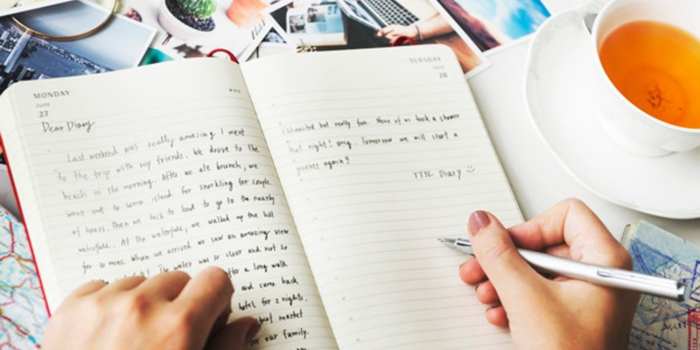 MONDAY
June
27
Dear Diary
Last weekend was really amazing I went
to the trip with my friends. We drove to the
beach in the morning. After we ate brunch, we
went out to some island for snorkling for couple
of hours. Then we back to land to go to the nearby
waterfall. At the waterfall, we walked up the hill
for so many when we arrived we saw an amazing view
The water was so clear and not so
for a long walk
and came back
hotel for 2 nights,
market
our Family.
TUESDAY
28
Exhausted but really fun. None of us took a shower
that night! omg. Tomorrow we will start a
journey again!
TTYL Diary